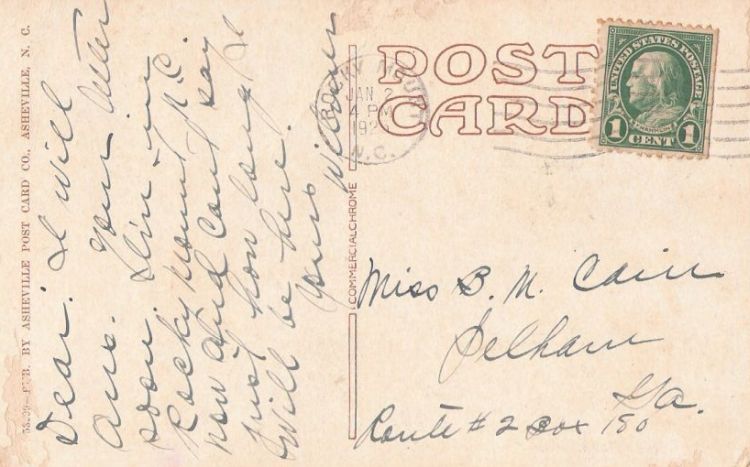 Dear. I will
ans. your letter
soon. Liv-in
Rocky Mount N.C.
now and cant say
Just how long I
will be here.
Yours William
53299—PUB. BY ASHEVILLE POST CARD CO., ASHEVILLE, N. C.
COMMERCIALCHROME
POST
CARD
ROCKY MOUNT
JAN 2
4 PM
192
N.C.
UNITED STATES POSTAGE
FRANKLIN
1 CENT 1
Miss B. M. Cain
Pelham
Ga.
Route #2 Box 180